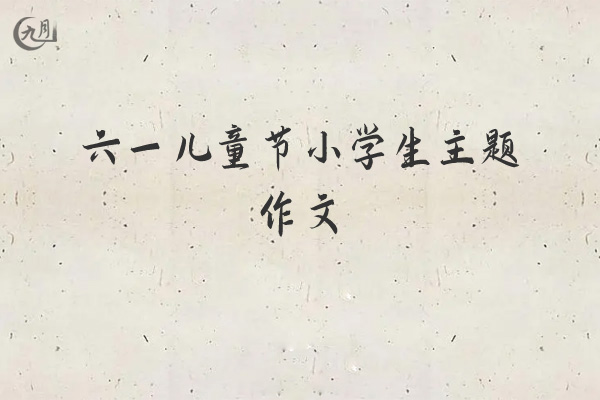 九月
六一儿童节小学生主题
作文